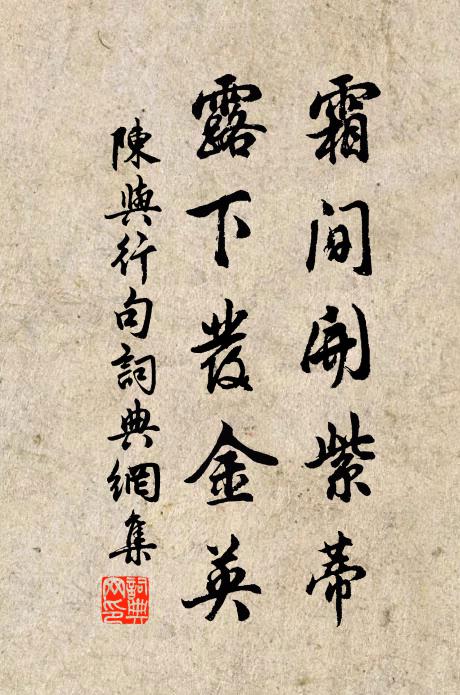 霜間開紫蒂
露下發金英
陳與行句詞典網集
詞典網印